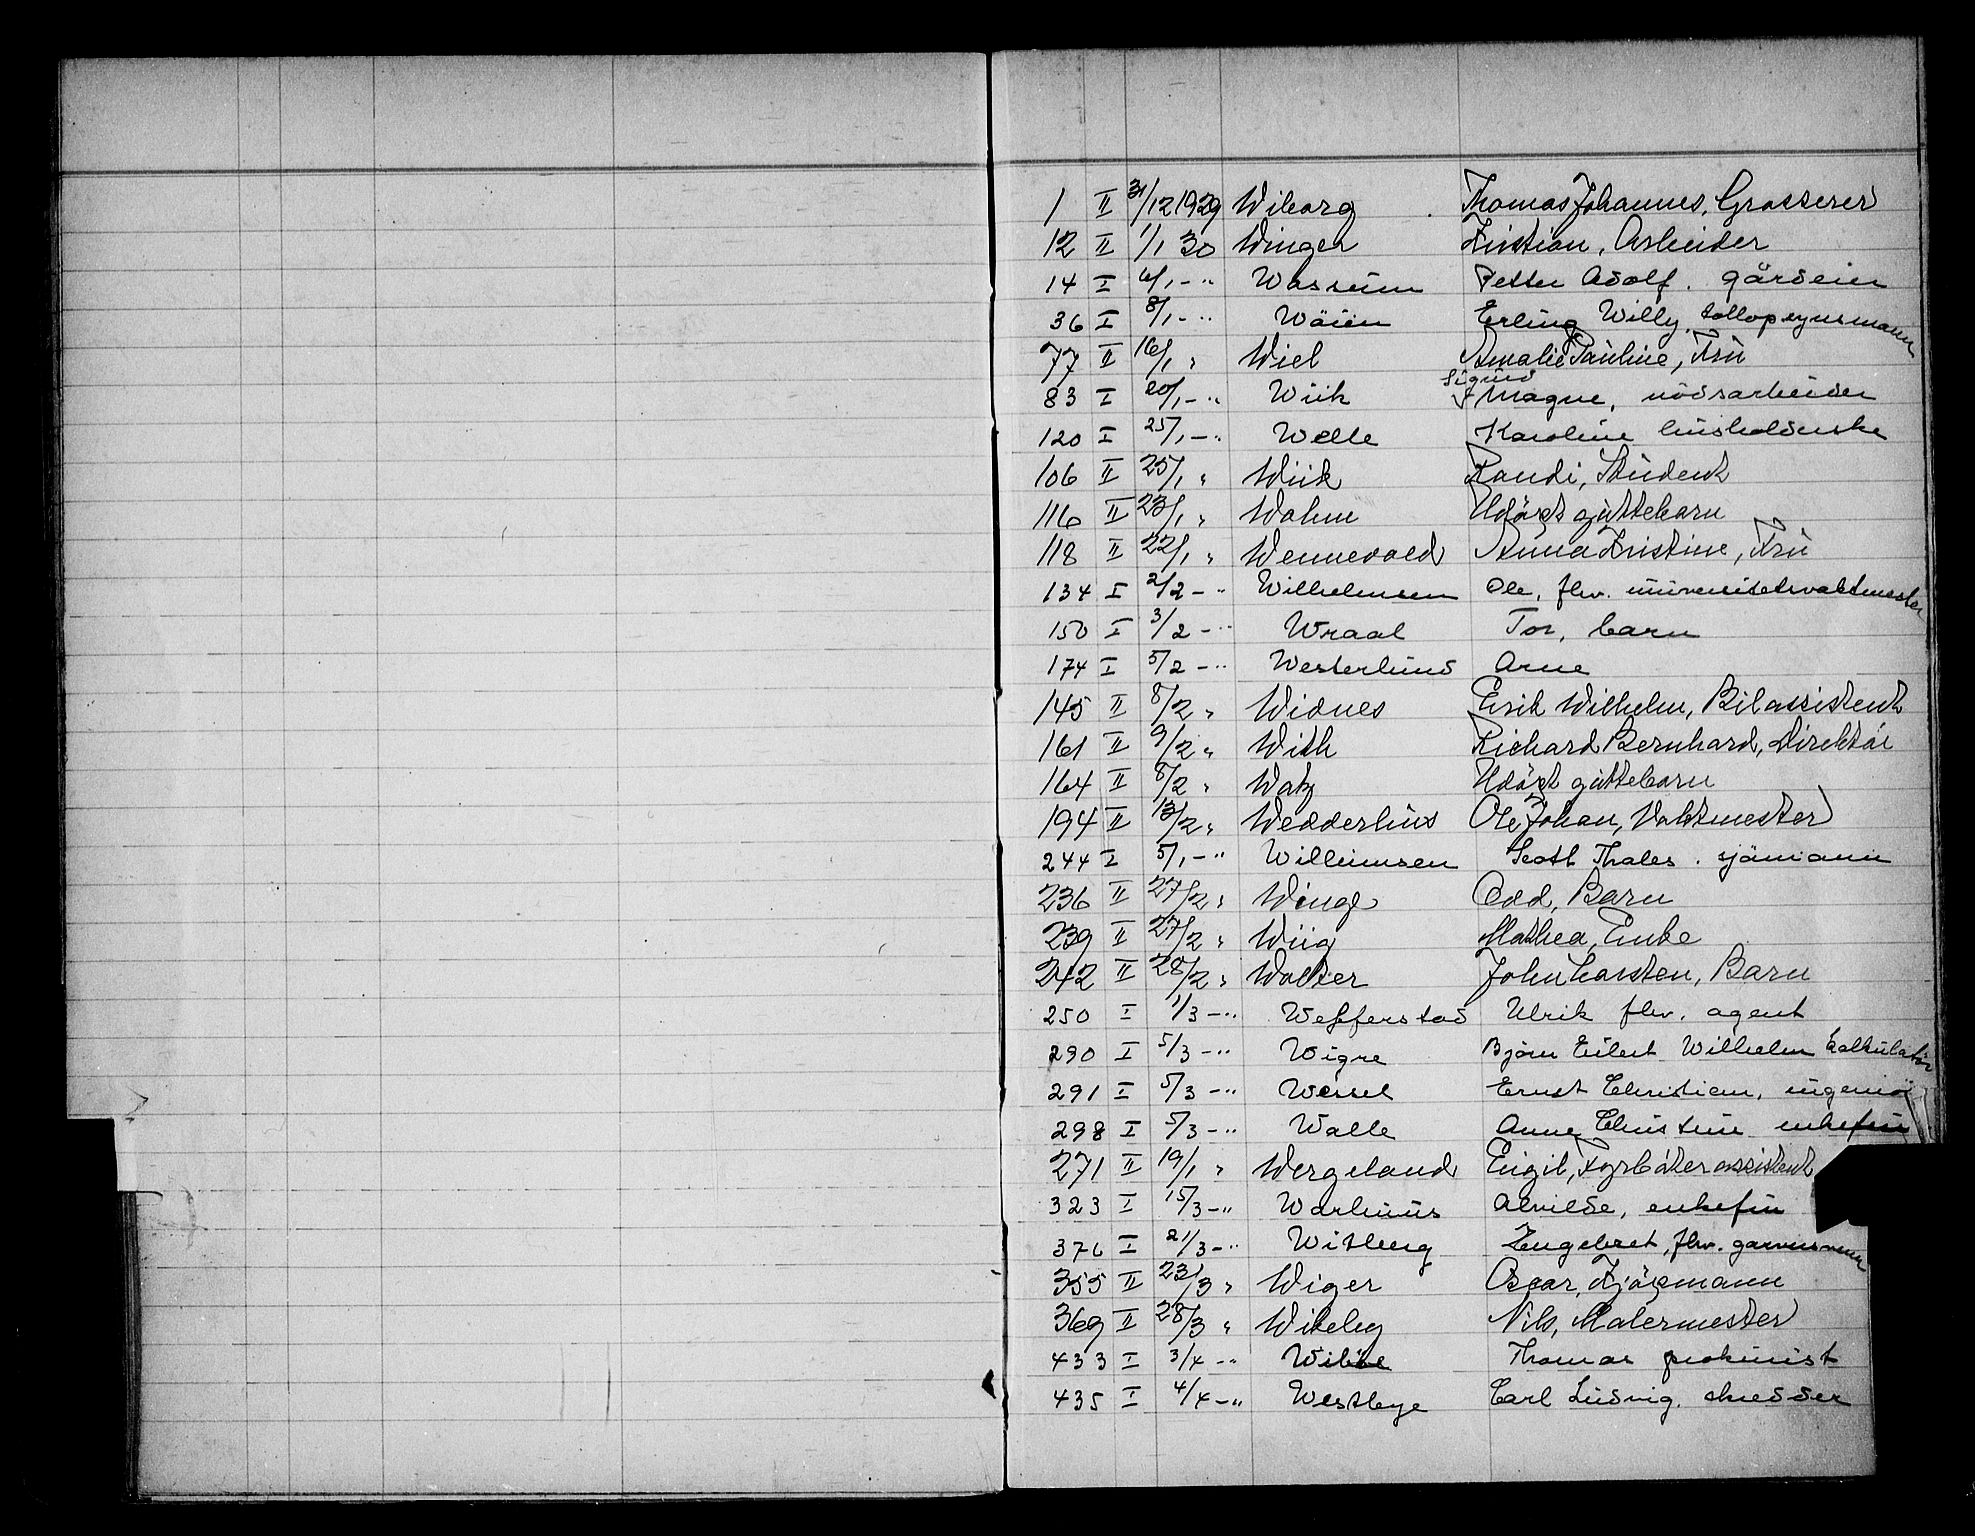 1 II 31/12 1929 Wiborg Thomas Johannes, Grosserer
12 II 1/1 30 Winger Kristian, Arbeider
14 I 6/1 - " Wassum Petter Adolf. gårdeier
36 I 8/1 - " Wäien Erling Willy. tollopsynsmann
77 II 16/1 " Wiel Amalie Pauline, Fru
83 I 20/1 - " Wiik Sigurd Magne, nödsarbeider
120 I 25/1 - " Welle Karoline husholderske
106 II 25/1 " Wiik Randi, Student
116 II 23/1 " Wohm Udöpt guttebarn
118 II 22/1 " Wennevold Anna Kristine, Fru
134 I 2/2 - " Wilhelmsen Ole, fhv. universitetsvaktmester
150 I 3/2 - " Wraal Tor, barn
174 I 5/2 - " Westerlund Arne
145 II 8/2 " Widnes Erik Wilhelm, Bilassistent
161 II 9/2 " With Richard Bernhard, Direktör
164 II 8/2 " Watz Udöpt guttebarn
194 II 13/2 " Wedderhus Ole Johan, Vaktmester
244 I 5/1 - " Williumsen Scott Thales. sjömann
236 II 27/2 " Winge Odd, Barn
239 II 27/2 " Wiig Mathea, Enke
242 II 28/2 " Walter John Carsten, Barn
250 I 1/3 - " Wefferstad Ulrik fhv. agent
290 I 5/3 - " Wigre Björn Eilert Wilhelm kalkulatör
291 I 5/3 - " Wessel Ernst Christian, ingeniör
298 I 5/3 - " Walle Anne Christine enkefru
271 II 19/1 " Wergeland Eigil, Fyrbøterassistent
323 I 15/3 - " Warhuus Alvilde, enkefru
376 I 21/3 - " Witberg Engebret, fhv. garversvenn
355 II 23/3 " Wiger Oscar, Kjöpmann
369 II 28/3 " Wikeby Nils, Malermester
433 I 3/4 - " Thomas prokurist
435 I 4/4 - " Westbye Carl Ludvig. skredder